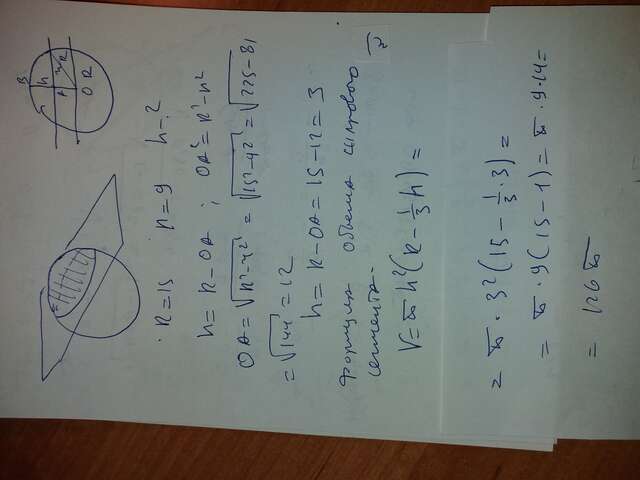 B
h
A
r
R
O R
R=15 r=9 h-?
h=R-OA; OA²=R²-r²
OA=√R²-r² = √15²-9² = √225-81
=√144=12
h=R-OA=15-12=3
Формула объема шарового
сегмента-
V=π h²(R-1/3 h)=
= π·3²(15-1/3·3)=
= π·9(15-1)=π·9·14=
= 126π